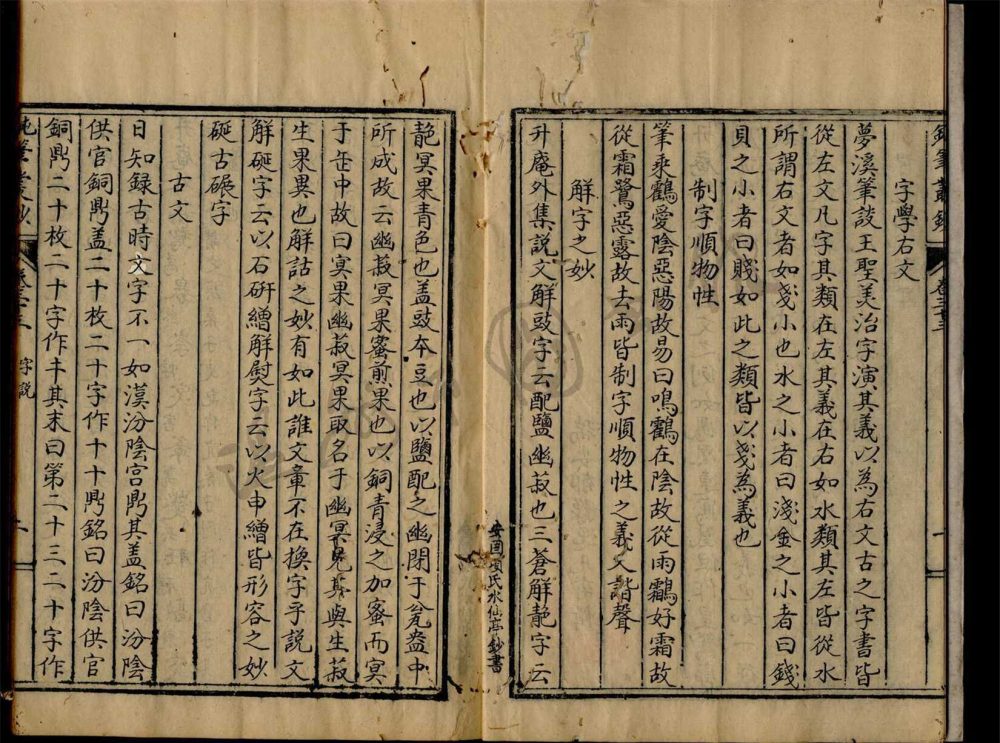 字學右文
夢溪筆談王聖美治字演其義以為右文古之字書皆
從左文凡字其類在左其義在右如水類其左皆從水
所謂右文者如戔小也水之小者曰淺金之小者曰錢
貝之小者曰賤如此之類皆以戔為義也
制字順物性
筆乘鸖愛陰惡陽故易曰鳴鸖在陰故從雨鸖好霜故
從霜鷺惡露故去雨皆制字順物性之義又諧聲
解字之妙
升庵外集說文解豉字云配鹽幽菽也三蒼解䴶字云
安固項氏水仙亭鈔書
䴶冥果青色也盖豉本豆也以鹽配之幽閉于瓮盎中
所成故云幽菽冥果蜜煎果也以銅青浸之加蜜而冥
于缶中故曰冥果幽菽冥果取名于幽冥見其與生菽
生果異也解詁之妙有如此誰文章不在換字乎說文
解硟字云以石硏繒解熨字云以火申繒皆形容之妙
硟古碾字
古文
日知録古時文字不一如漢汾陰宫鼎其盖銘曰汾陰
供官銅鼎盖二十枚二十字作十十鼎銘曰汾陰供官
銅鼎二十枚二十字作丰其末曰第二十三二十字作
字說